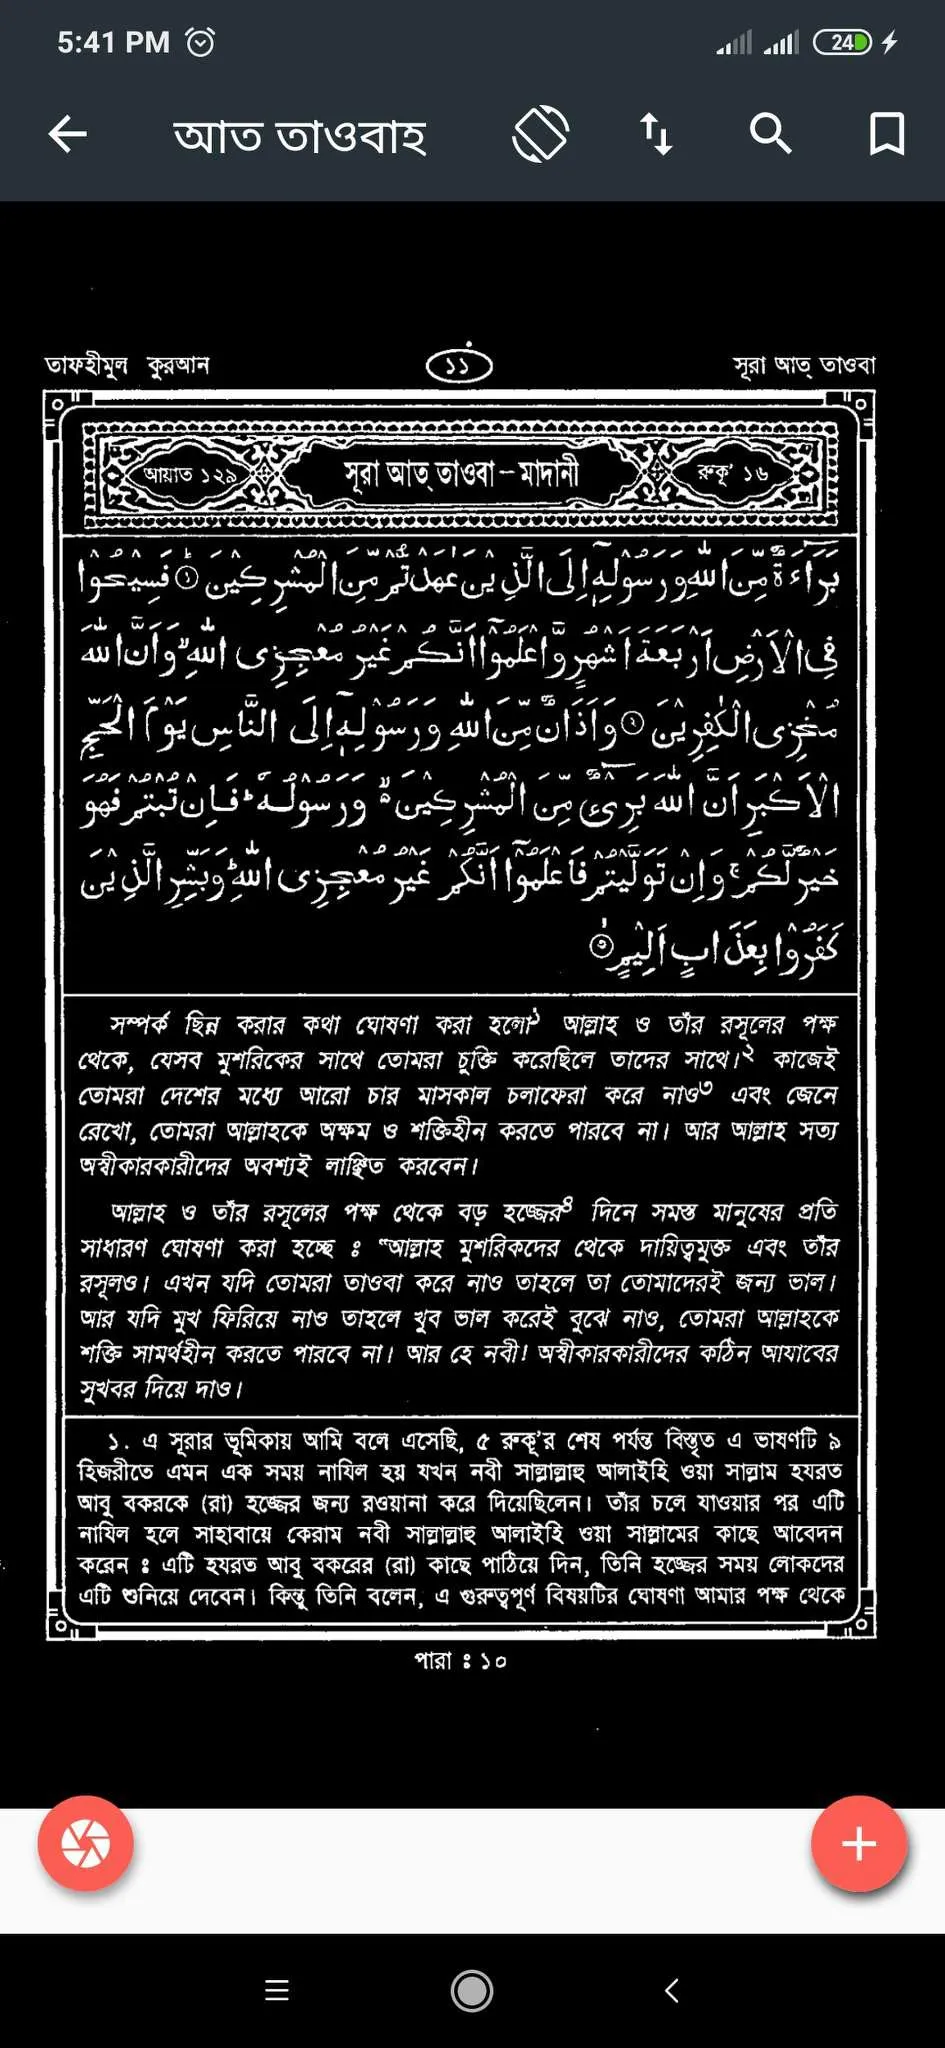 5:41 PM
24
আত তাওবাহ
তাফহীমুল কুরআন
১১
সূরা আত্ তাওবা
আয়াত ১২৯
সূরা আত্ তাওবা – মাদানী
রুকূ' ১৬
بَرَآءَةٌ مِّنَ اللّٰهِ وَرَسُوْلِهٖٓ اِلَى الَّذِيْنَ عٰهَدْتُّمْ مِّنَ الْمُشْرِكِيْنَ ۞ فَسِيْحُوْا
فِى الْاَرْضِ اَرْبَعَةَ اَشْهُرٍ وَّاعْلَمُوْٓا اَنَّكُمْ غَيْرُ مُعْجِزِى اللّٰهِ ۙ وَاَنَّ اللّٰهَ
مُخْزِى الْكٰفِرِيْنَ ۞ وَاَذَانٌ مِّنَ اللّٰهِ وَرَسُوْلِهٖٓ اِلَى النَّاسِ يَوْمَ الْحَجِّ
الْاَكْبَرِ اَنَّ اللّٰهَ بَرِىْٓءٌ مِّنَ الْمُشْرِكِيْنَ ۙ۬ وَرَسُوْلُهٗ ؕ فَاِنْ تُبْتُمْ فَهُوَ
خَيْرٌ لَّكُمْ ۚ وَاِنْ تَوَلَّيْتُمْ فَاعْلَمُوْٓا اَنَّكُمْ غَيْرُ مُعْجِزِى اللّٰهِ ؕ وَبَشِّرِ الَّذِيْنَ
كَفَرُوْا بِعَذَابٍ اَلِيْمٍ ۞
সম্পর্ক ছিন্ন করার কথা ঘোষণা করা হলো১ আল্লাহ ও তাঁর রসূলের পক্ষ
থেকে, যেসব মুশরিকের সাথে তোমরা চুক্তি করেছিলে তাদের সাথে।২ কাজেই
তোমরা দেশের মধ্যে আরো চার মাসকাল চলাফেরা করে নাও৩ এবং জেনে
রেখো, তোমরা আল্লাহকে অক্ষম ও শক্তিহীন করতে পারবে না। আর আল্লাহ সত্য
অস্বীকারকারীদের অবশ্যই লাঞ্ছিত করবেন।
আল্লাহ ও তাঁর রসূলের পক্ষ থেকে বড় হজ্জের৪ দিনে সমস্ত মানুষের প্রতি
সাধারণ ঘোষণা করা হচ্ছে ঃ “আল্লাহ মুশরিকদের থেকে দায়িত্বমুক্ত এবং তাঁর
রসূলও। এখন যদি তোমরা তাওবা করে নাও তাহলে তা তোমাদেরই জন্য ভাল।
আর যদি মুখ ফিরিয়ে নাও তাহলে খুব ভাল করেই বুঝে নাও, তোমরা আল্লাহকে
শক্তি সামর্থহীন করতে পারবে না। আর হে নবী! অস্বীকারকারীদের কঠিন আযাবের
সুখবর দিয়ে দাও।
১. এ সূরার ভূমিকায় আমি বলে এসেছি, ৫ রুকূ'র শেষ পর্যন্ত বিস্তৃত এ ভাষণটি ৯
হিজরীতে এমন এক সময় নাযিল হয় যখন নবী সাল্লাল্লাহু আলাইহি ওয়া সাল্লাম হযরত
আবু বকরকে (রা) হজ্জের জন্য রওয়ানা করে দিয়েছিলেন। তাঁর চলে যাওয়ার পর এটি
নাযিল হলে সাহাবায়ে কেরাম নবী সাল্লাল্লাহু আলাইহি ওয়া সাল্লামের কাছে আবেদন
করেন ঃ এটি হযরত আবু বকরের (রা) কাছে পাঠিয়ে দিন, তিনি হজ্জের সময় লোকদের
এটি শুনিয়ে দেবেন। কিন্তু তিনি বলেন, এ গুরুত্বপূর্ণ বিষয়টির ঘোষণা আমার পক্ষ থেকে
পারা ঃ ১০